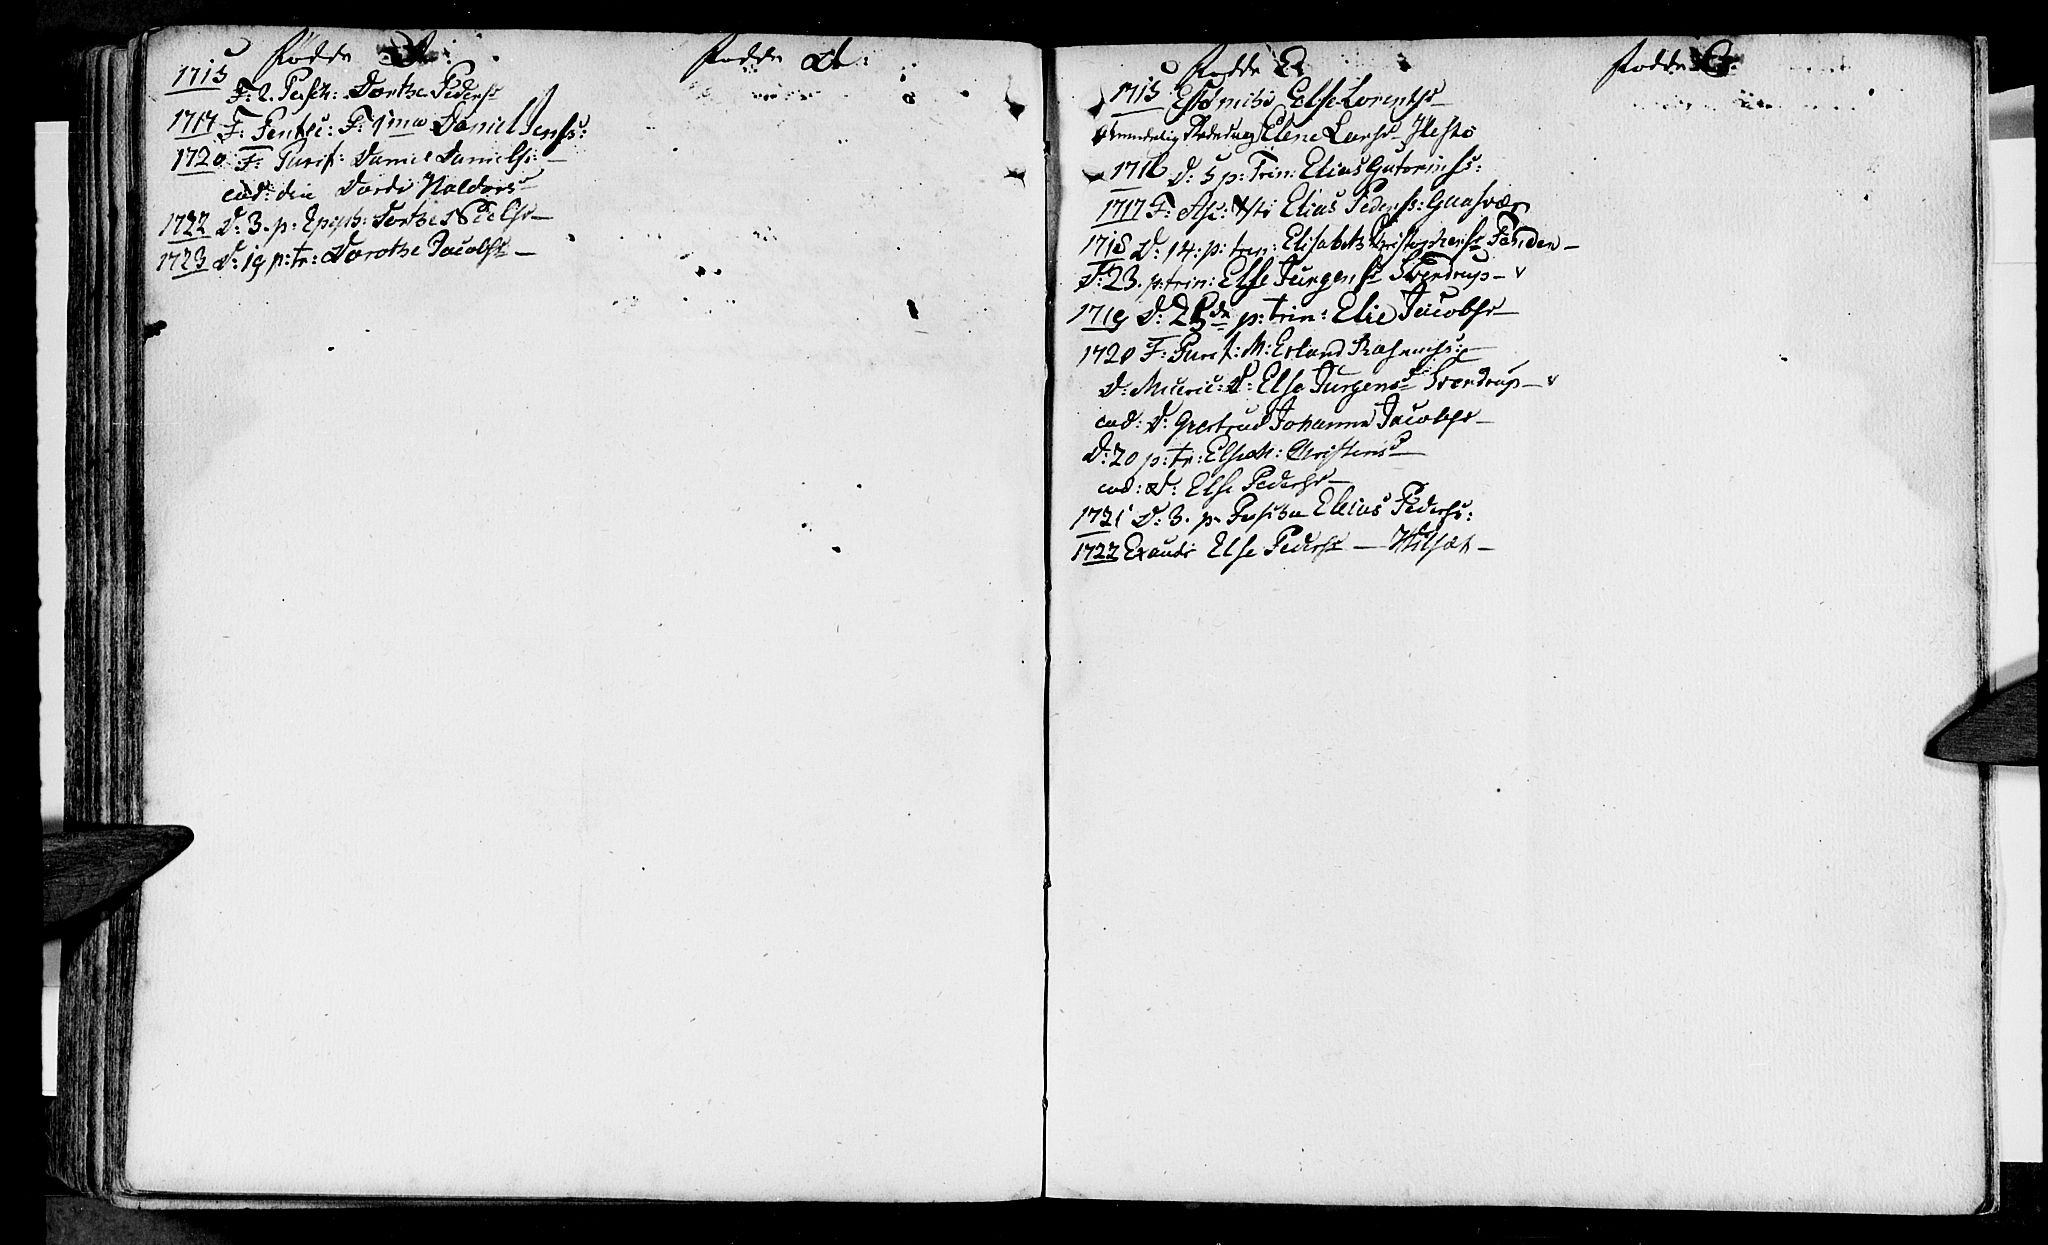 Fødde D:
Fødde D:
1715
F: 2. Pasch: Dorthe Pedersd
1717 F: Pentec: F: 1ma Daniel Jenss:
1720 F: Purif: Daniel Daniels: —
eod: die Dordi Haldors —
1722 D: 3. p: Epiph: Dorthe —
1723 D: 19 p: tr: Dorothe Jacobsd —
Fødde E
Fødde E:
1715 Esto mihi Else Lorentsd
Almindelig Bededag Elene Larsd
1716 D: 5 p: Trin: Elias Guttormss:
1717 F: Asc: Xsti Elias Peders: Gaasvær
1718 D: 14: p: trin: Elisabeth Christophersd —
D: 23. p: trin: Else Jurgensd Sverdrup — v
1719 D: p: trin: Elie Jacobsd —
1720 F: Purif: M: Erland Rasmuss: —
D: Miseric: D: Else Jurgensd Sverdrup — v
eod: D: Gertrud Johanna Jacobsd —
D: 20 p: tr: Christensd —
eod: D: Else Pedersd —
1721 D: 3. p Pascha Elias Peders:
1722 Exaudi Else Pedersd —